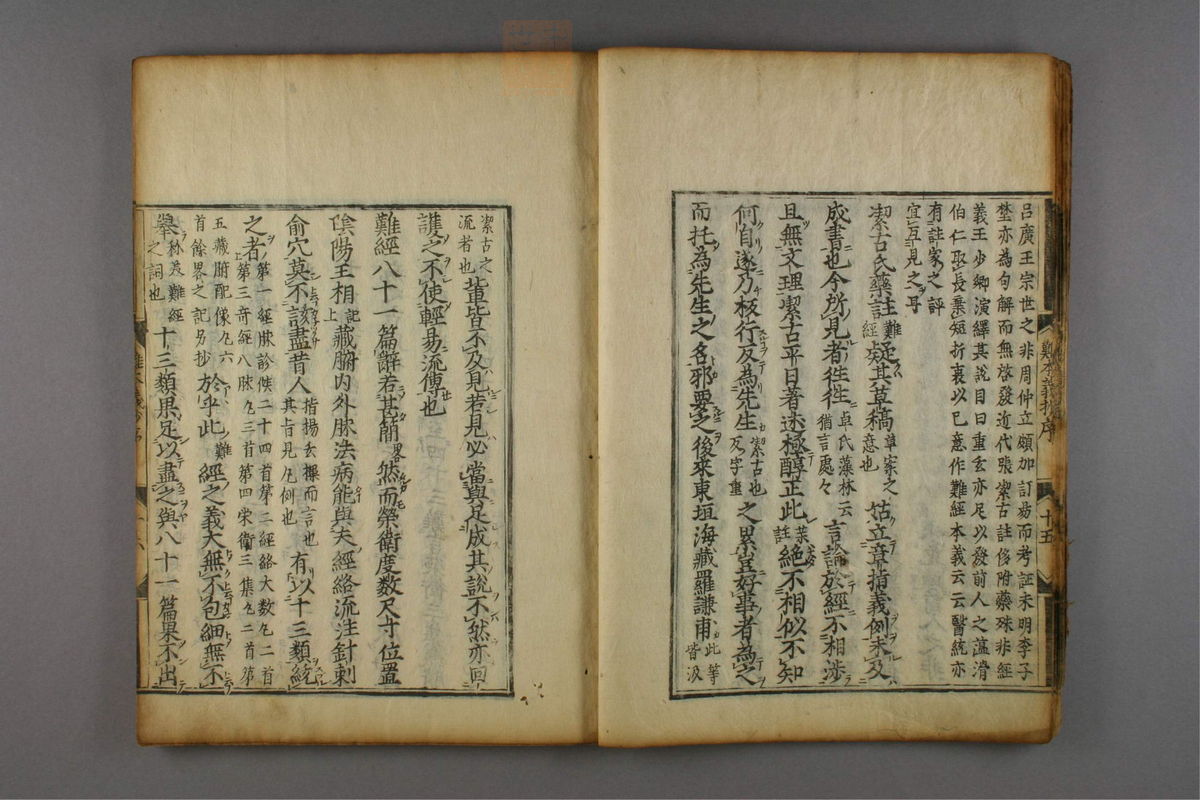 呂廣王宗世之非周仲立頗加訂易而考証未明李子
埜亦為句解而無啓發近代張潔古註後附藥殊非經
義王少卿演繹其說目曰重玄亦足以發前人之蘊滑
伯仁取長棄短折衷以已意作難經本義云云醫統亦
有註家之評
宜互見之耳
潔古氏藥註難經疑其草稿草案之意也姑立章指義例未及
成書也今所見者徃徃卓氏藻林云猶言處々言論於經不相渉
且無文理潔古平日著述極醇正此藥註絶不相似不知
何自遂乃板行反為先生潔古也反字重之累豈好事者為之
而托為先生之名邪要之後來東垣海藏羅謙甫此等皆汲
難經本義抄序
十五
潔古之流者也軰皆不及見若見必當與足成其說不然亦回
護之不使輕易流傳也
難經八十一篇辭若甚簡畧然而榮衛度数尺寸位置
陰陽王相記上藏腑内外脉法病能與夫經絡流注針刺
俞穴莫不該盡昔人指揚玄操而言也其旨見凡例也有以十三類統
之者第一經脉診候二十四首第二經絡大数凡二首
第三竒經八脉凡三首第四栄衛三集凡二首第
五藏腑配像凡六
首餘畧之記另抄於乎此難經之義大無不包細無不
舉称美難經之詞也十三類果足以盡之與八十一篇果不出